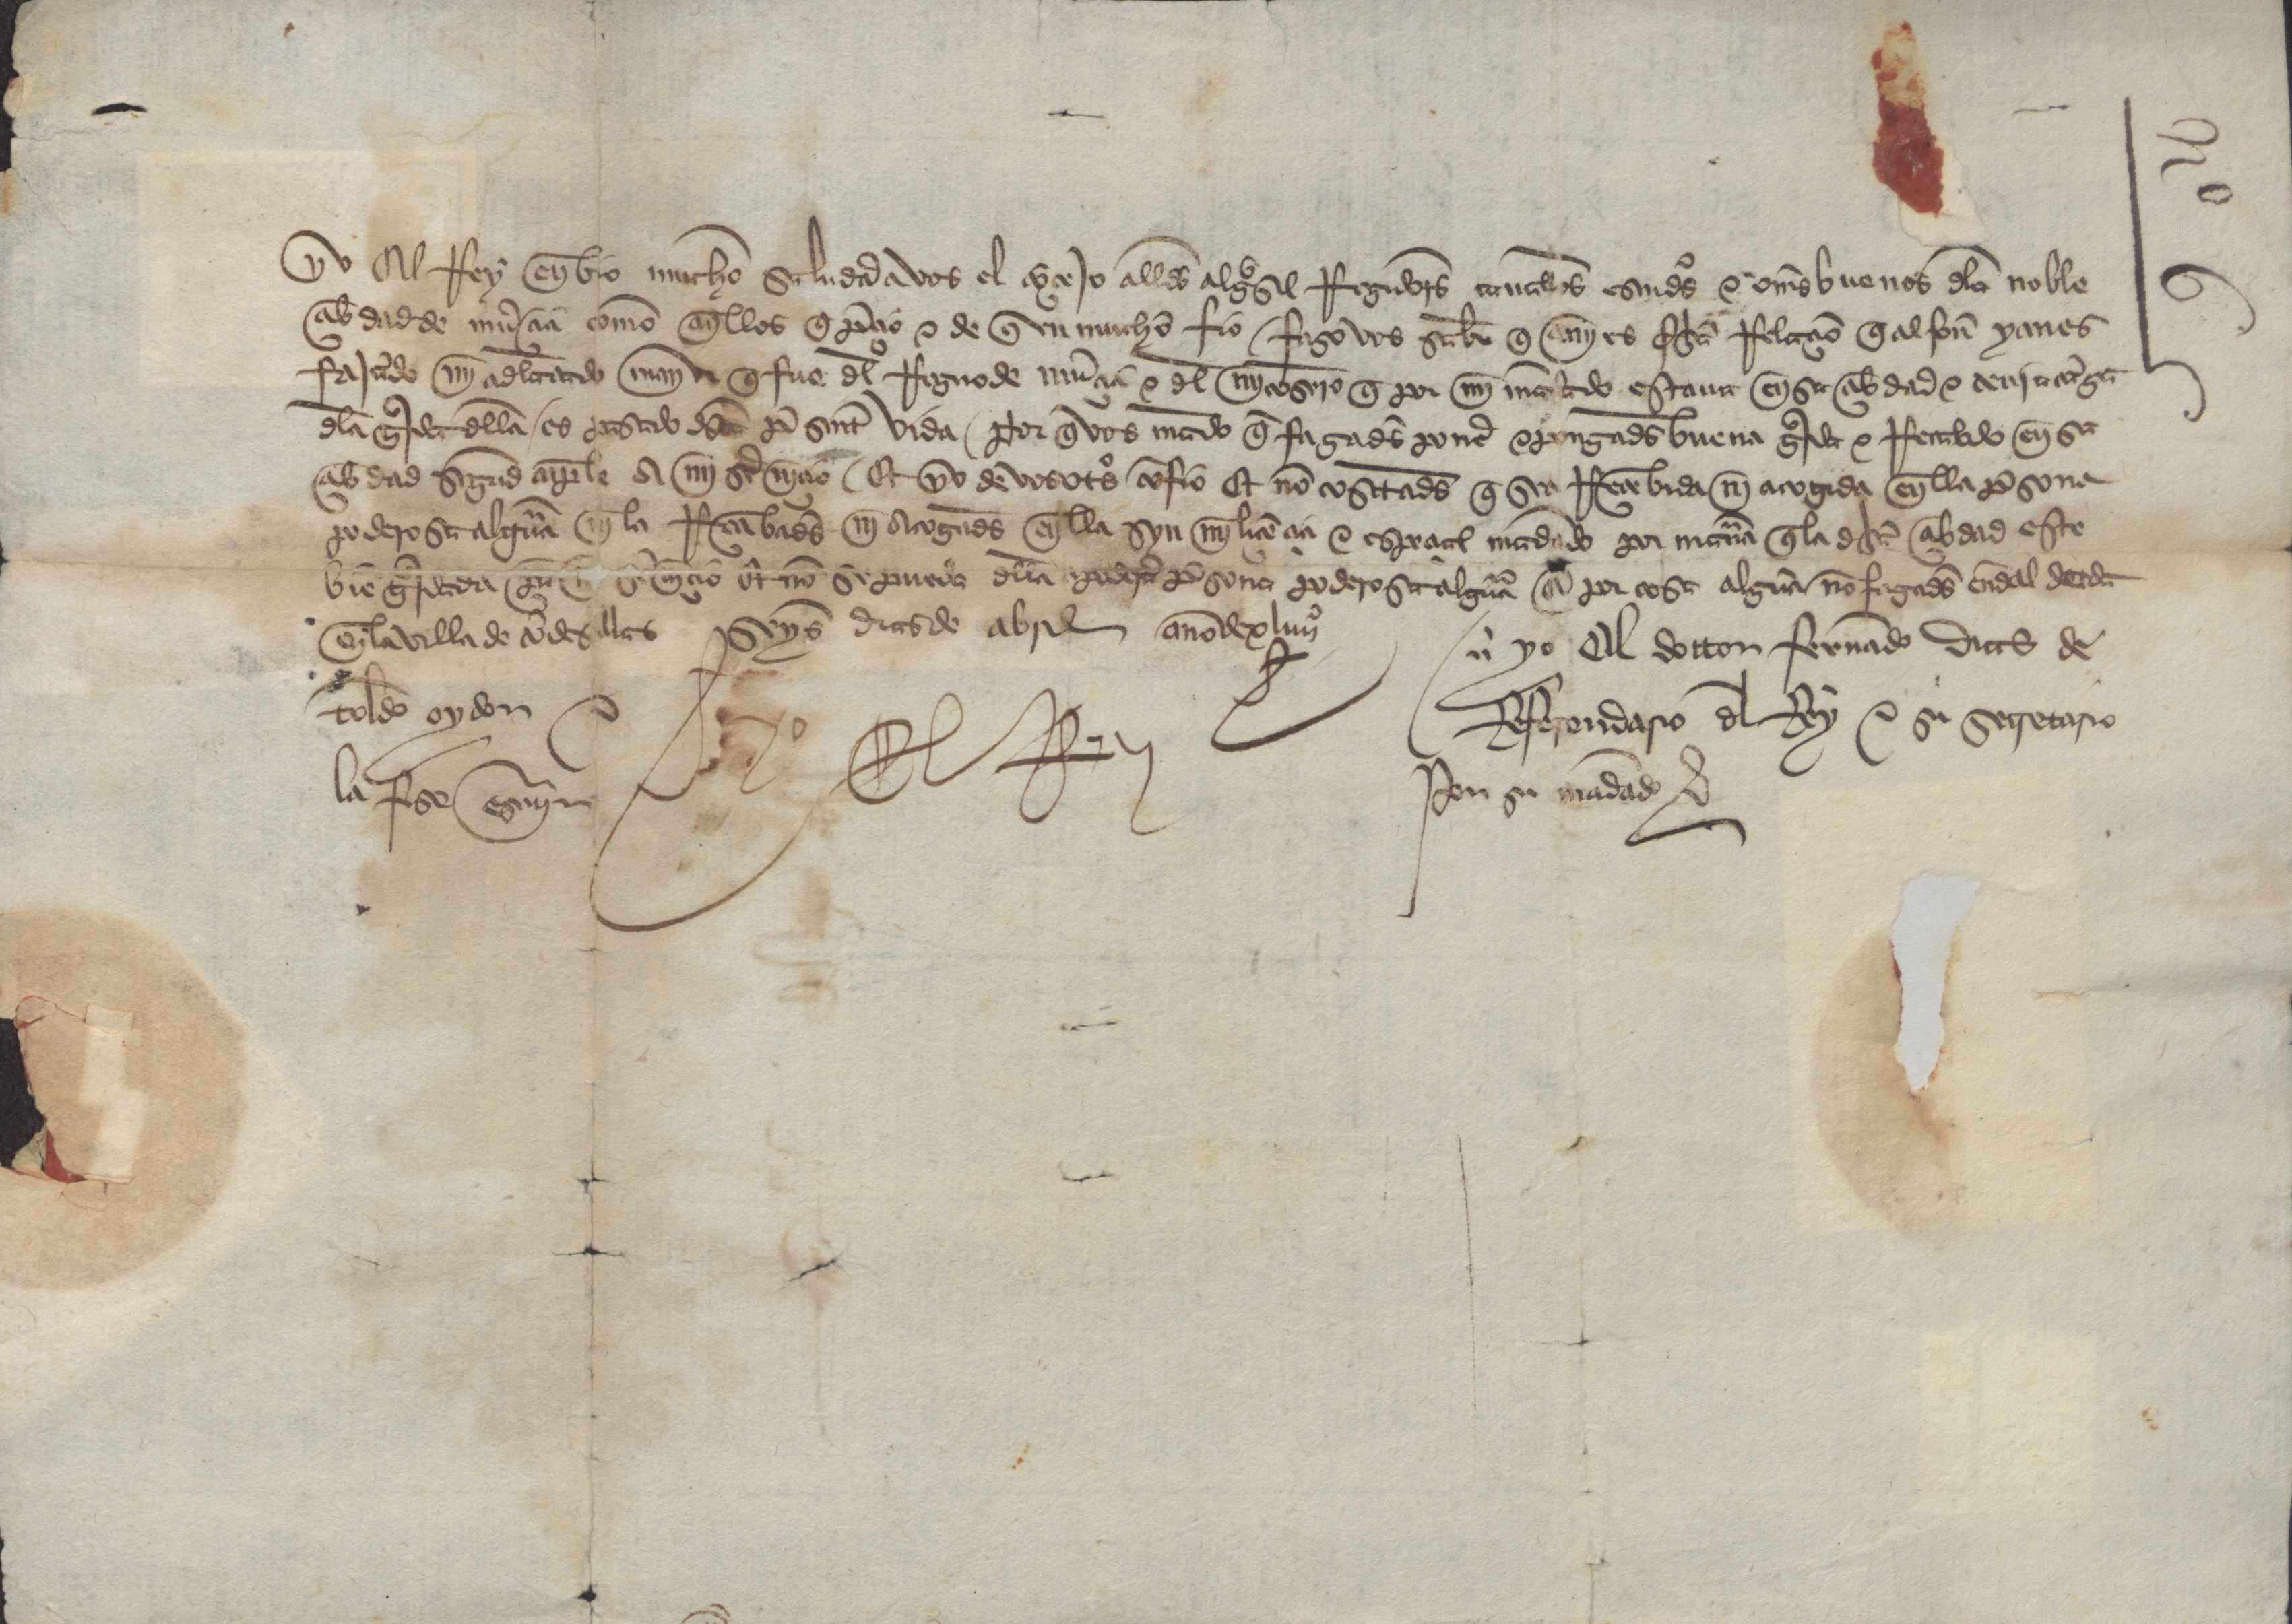 yo El Rey enbio mucho saludar a vos el conçejo alcaldes alguasil Regidores caualleros escuderos e omes buenos dela noble
çibdad de murçia como aquellos que preçio e de quien mucho fio / fago vos saber que a mi es fecha Relaçion que alfonso yanes
fajardo mi adelantado mayor que fue del Regno de murçia e del mi consejo que por mi mandado estaua en esa çibdad e tenia cargo
dela guarda della / es pasado desta presente vida / por que vos mando que fagades poner e pongades buena guarda e Recabdo en esa
çibdad segund cunple a mi seruiçio / Et yo de vosotros confio Et non consintades que sea Reçebida ni acogida en ella persona
poderosa alguna ni la Reçibades ni acogades en ella syn mi liçençia e espeçial mandado por manera que la dicha çibdad este
bien guardada para mi seruiçio Et non se pueda della apoderar persona poderosa alguna E por cosa alguna non fagades ende al dada
en la villa de tordesillas seys dias de abril año de xliiiiº
yo El dottor fernando dias de
toledo oydor e Referendario del Rey e su secretario
la fise escriuir por su mandado
Yo El Rey
No
9